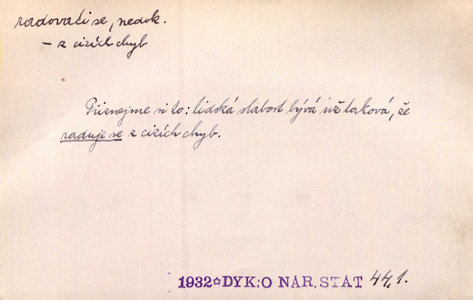 radovati se, nedok.
– z cizích chyb
Přiznejme si to: lidská slabost bývá už taková, že
raduje se z cizích chyb.
1932☆DYK: O NÁR. STÁT 44,1.